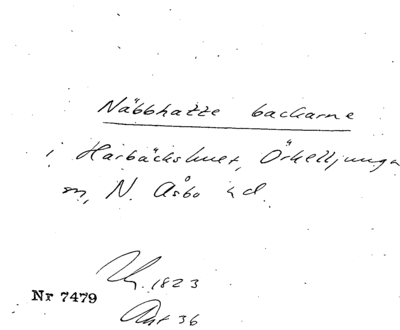 Näbbhatte backarne
i Harbäckshult, Örkelljunga
sn, N. Åsbo hd.
1823
Nr 7479
Ant 36